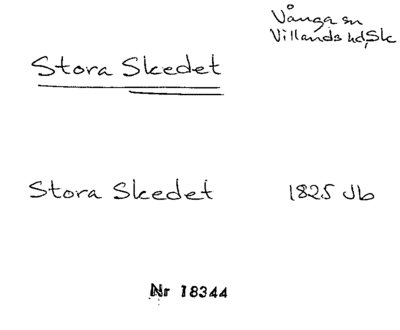 Vånga sn
Villands hd, Sk
Stora Skedet
Stora Skedet 1825 Jb
Nr 18344